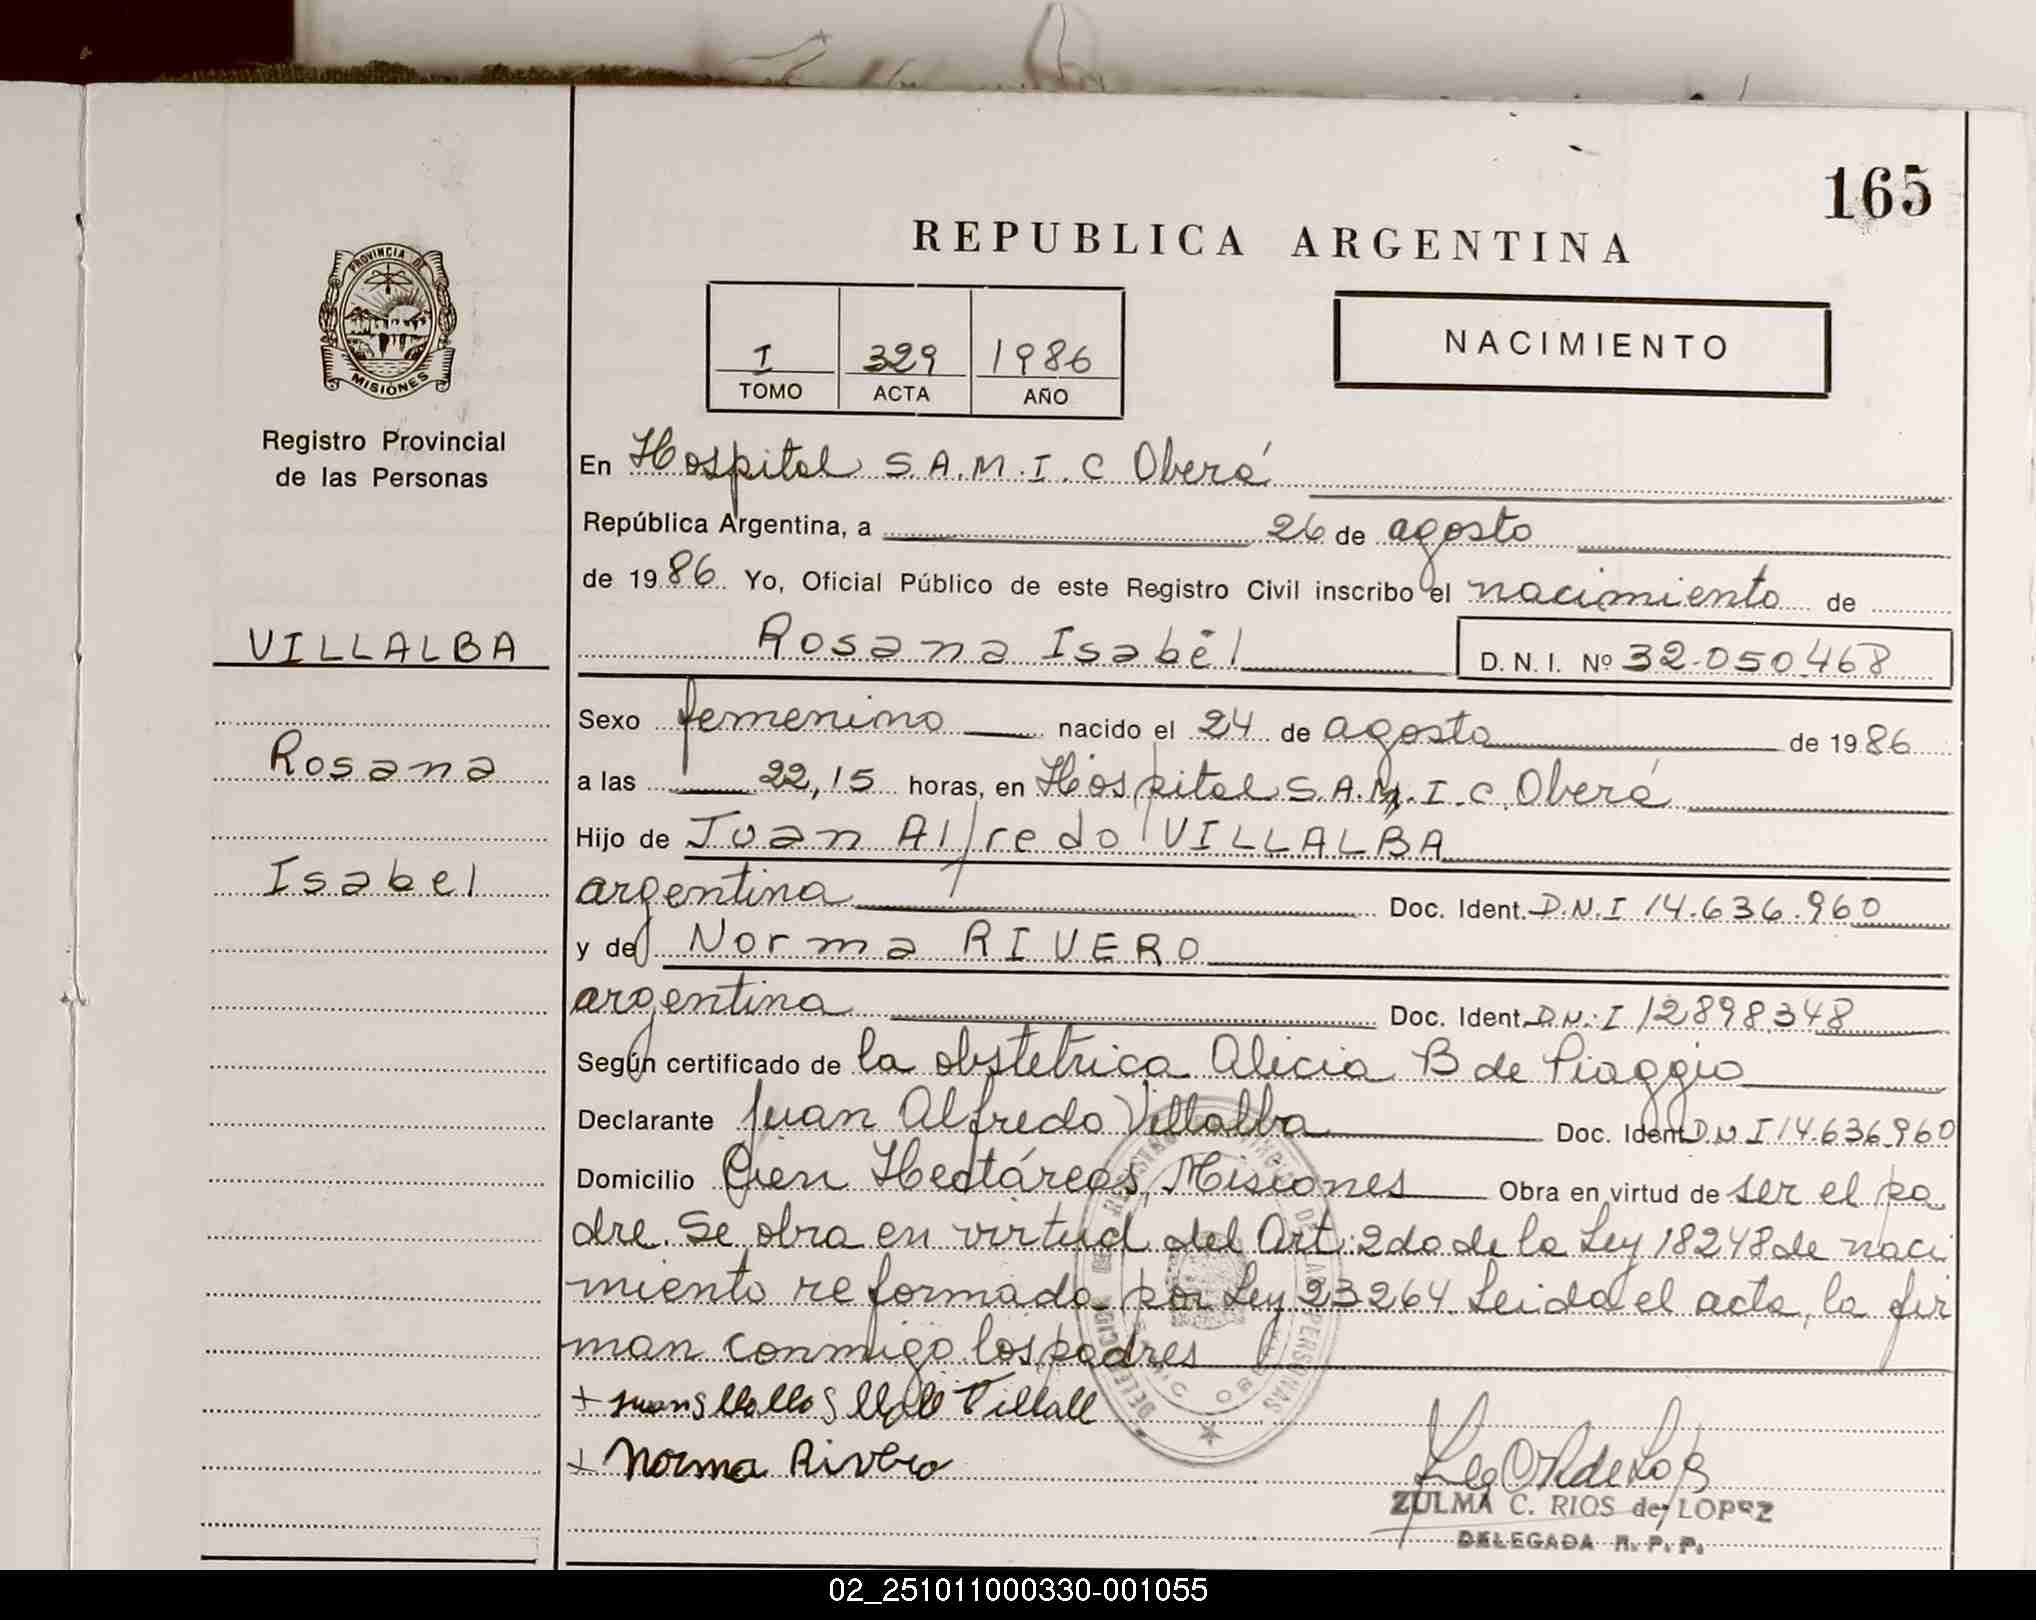 165
REPUBLICA ARGENTINA
PROVINCIA DE
MISIONES
Registro Provincial
de las Personas
I 329 1986
TOMO ACTA AÑO
NACIMIENTO
VILLALBA
Rosana
Isabel
En Hospital S.A.M.I.C Oberá
República Argentina, a 26 de agosto
de 1986 Yo, Oficial Público de este Registro Civil inscribo el nacimiento de
Rosana Isabel D. N. I. Nº 32.050.468
Sexo femenino nacido el 24 de agosto de 1986
a las 22,15 horas, en Hospital S.A.M.I.C. Oberá
Hijo de Juan Alfredo VILLALBA
argentina Doc. Ident. D.N.I 14.636.960
y de Norma RIVERO
argentina Doc. Ident. D.N.I 12898348
Según certificado de la obstetrica Alicia B de Piaggio
Declarante Juan Alfredo Villalba Doc. Ident. D N I 14.636960
Domicilio Cien Hectáreas, Misiones Obra en virtud de ser el pa
dre. Se obra en virtud del Art. 2do de la Ley 18248 de naci
miento reformada por Ley 23264 Leida el acta, la fir
man conmigo los padres
Norma Rivero
ZULMA C. RIOS de LOPEZ
DELEGADA R. P. P.
02_251011000330-001055